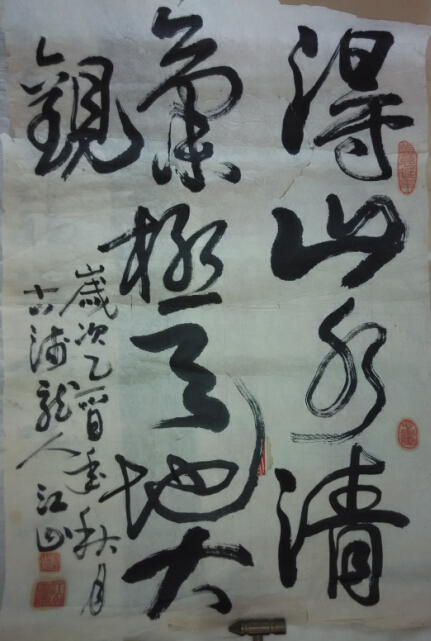 得山水清
氣極天地大
觀
歲次乙酉秋月
古浦龍人江山